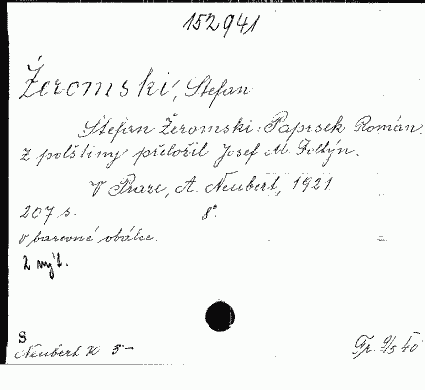 152941
Żeromski, Stefan
Stefan Żeromski: Paprsek Román.
Z polštiny přeložil Josef M. Foltýn.
V Praze, A. Neubert, 1921
207 s. 8°.
v barevné obálce.
2 výt.
S
Neubert K 5-